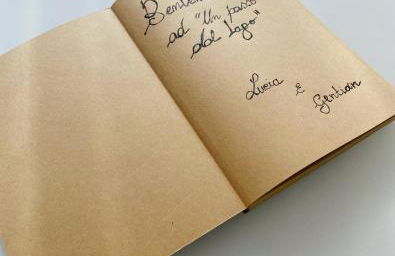 ad "Un passo
dal lago"
Lucia e
Gentian